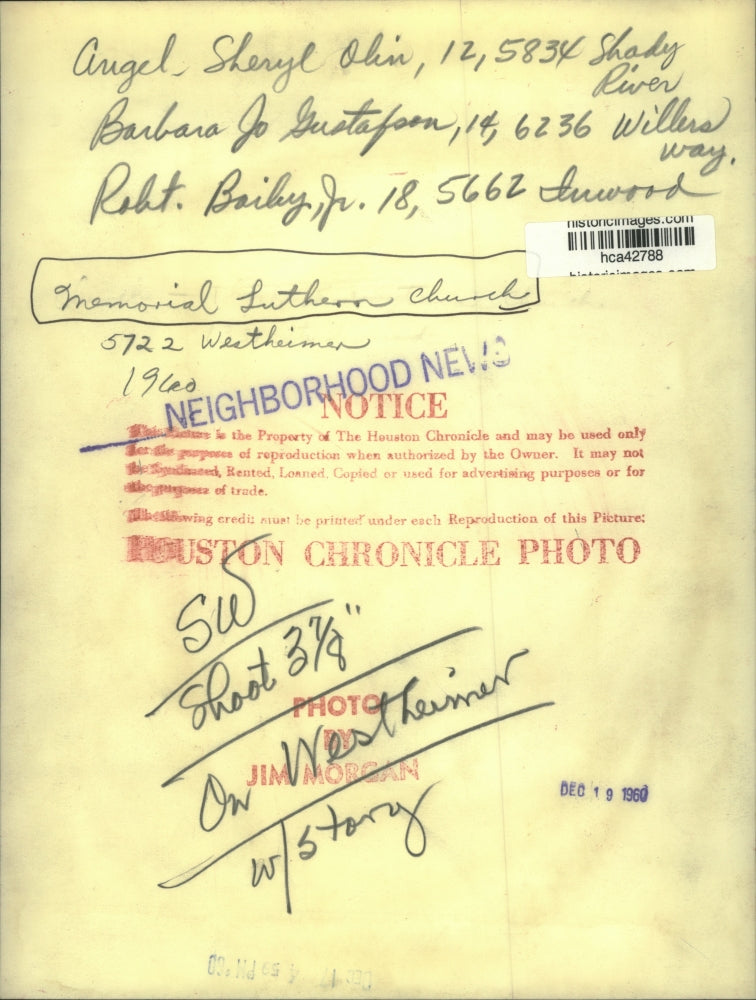 Angel - Sheryl Olin, 12, 5834 Shady
River
Barbara Jo Gustafson, 14, 6236 Willers
way.
Robt. Bailey, Jr. 18, 5662 Inwood
historicimages.com
hca42788
historicimages.com
Memorial Lutheran Church
5722 Westheimer
1960
NEIGHBORHOOD NEWS
NOTICE
This Picture is the Property of The Houston Chronicle and may be used only
for the purposes of reproduction when authorized by the Owner. It may not
be Syndicated, Rented, Loaned, Copied or used for advertising purposes or for
the purposes of trade.
The following credit must be printed under each Reproduction of this Picture:
HOUSTON CHRONICLE PHOTO
SW
Shoot 3 7/8"
PHOTO
BY
JIM MORGAN
On Westheimer
w/story
DEC 19 1960
DEC 17 4 59 PM '60